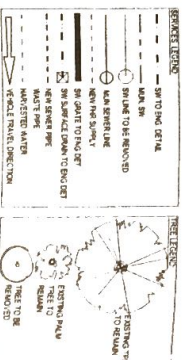 SERVICES LEGEND
SW TO ENG DETAIL
MUN. SW
SW LINE TO BE REMOVED
MUN SEWER LINE
NEW FHR SUPPLY
SW GRATE TO ENG DET
SW SURFACE DRAIN TO ENG DET
NEW SEWER PIPE
WASTE PIPE
HARVESTED WATER
VEHICLE TRAVEL DIRECTION
TREE LEGEND
EXISTING
TO REMAIN
EXISTING PALM
TREE TO
REMAIN
TREE TO BE
REMOVED